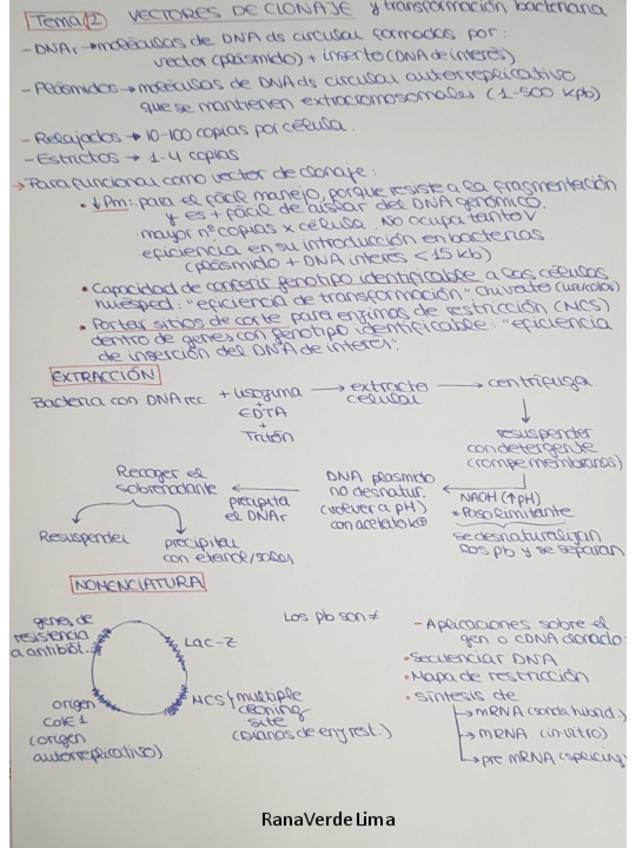 Tema 2 VECTORES DE CLONAJE y transformación bacteriana
- DNAr → moléculas de DNA ds circular formados por:
vector (plásmido) + inserto (DNA de interés)
- Plásmidos → moléculas de DNA ds circular autorreplicativo
que se mantienen extracromosomales (1-500 kpb)
- Relajados → 10-100 copias por célula.
- Estrictos → 1-4 copias
→ Para funcional como vector de clonaje:
• ↓Pm: para el fácil manejo, porque resiste a la fragmentación
y es + fácil de aislar del DNA genómico.
mayor nº copias x célula. No ocupa tanto V
eficiencia en su introducción en bacterias
(plásmido + DNA interés < 15 kb)
• Capacidad de conferir genotipo identificable a las células
huésped: "eficiencia de transformación" chivato
• Portar sitios de corte para enzimas de restricción (MCS)
dentro de genes con genotipo identificable: "eficiencia
de inserción del DNA de interés".
EXTRACCIÓN
Bacteria con DNA rec + lisozima + EDTA + Tritón → extracto celular → centrífuga
↓
resuspender
con detergente
(rompe membranas)
↓
NaOH (↑pH)
* Paso limitante
se desnaturalizan
los pb y se separan
← DNA plásmido
no desnatur.
(volver a pH)
con acetato k⊕
← precipita
el DNAr
Recoger el
sobrenadante
Resuspender
precipitar
con etanol/sales
NOMENCLATURA
genes de
resistencia
a antibiót.
Lac-Z
origen
ColE1
(origen
autorreplicativo)
MCS { multiple
cloning
site
(Dianas de enz rest.)
Los pb son ≠
- Aplicaciones sobre el
gen o cDNA clonado:
• Secuenciar DNA
• Mapa de restricción
• síntesis de
→ mRNA (sonda hibrid.)
→ mRNA (in vitro)
→ pre mRNA (splicing)
RanaVerdeLima